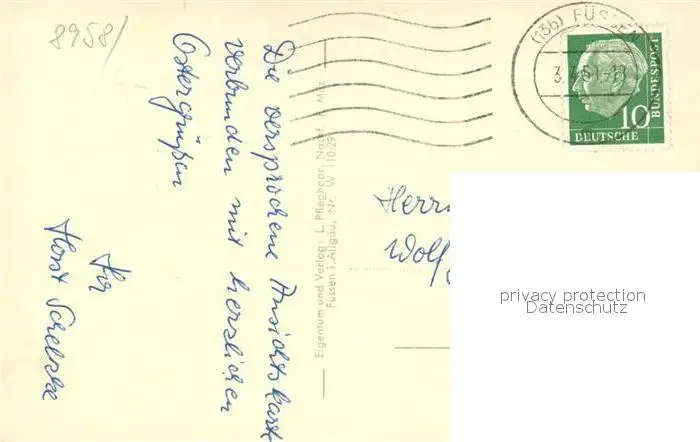 8958/
Die versprochene Ansichtskarte
verbunden mit herzlichen
Ostergrüßen
Ihr
Horst
Eigentum und Verlag: L. Pfleghaar, Nachf.
Füssen i. Allgäu, Nr. W 10/29
(13b) FÜSSEN
DEUTSCHE
BUNDESPOST
10
Herrn
Wolf
privacy protection
Datenschutz